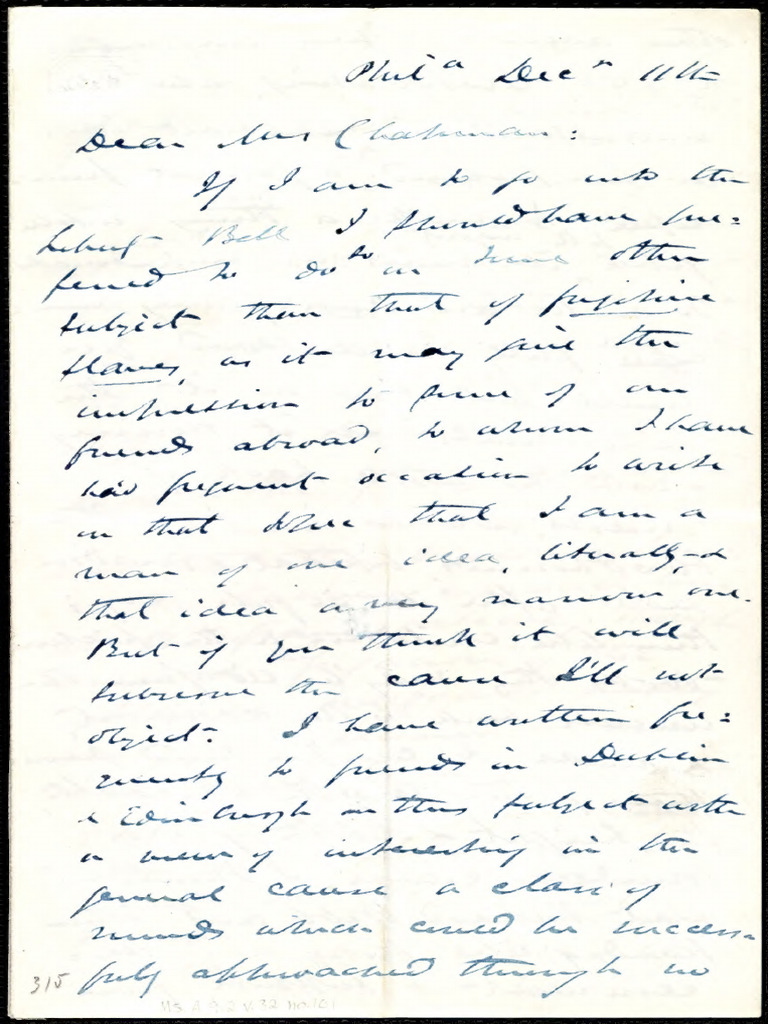 Phila Decr 11th
Dear Mrs Chapman:
If I am to go into the
Liberty Bell I should have pre=
ferred to do so on some other
subject than that of fugitive
slaves, as it may give the
impression to some of our
friends abroad, to whom I have
had frequent occasion to write
on that score that I am a
man of one idea, literally, &
that idea a very narrow one.
But if you think it will
subserve the cause I'll not
object. I have written fre=
quently to friends in Dublin
& Edinburgh on this subject with
a view of interesting in the
general cause a class of
minds which could be success=
fully approached through no
315
Ms. A. 9.2 v. 32 no. 101